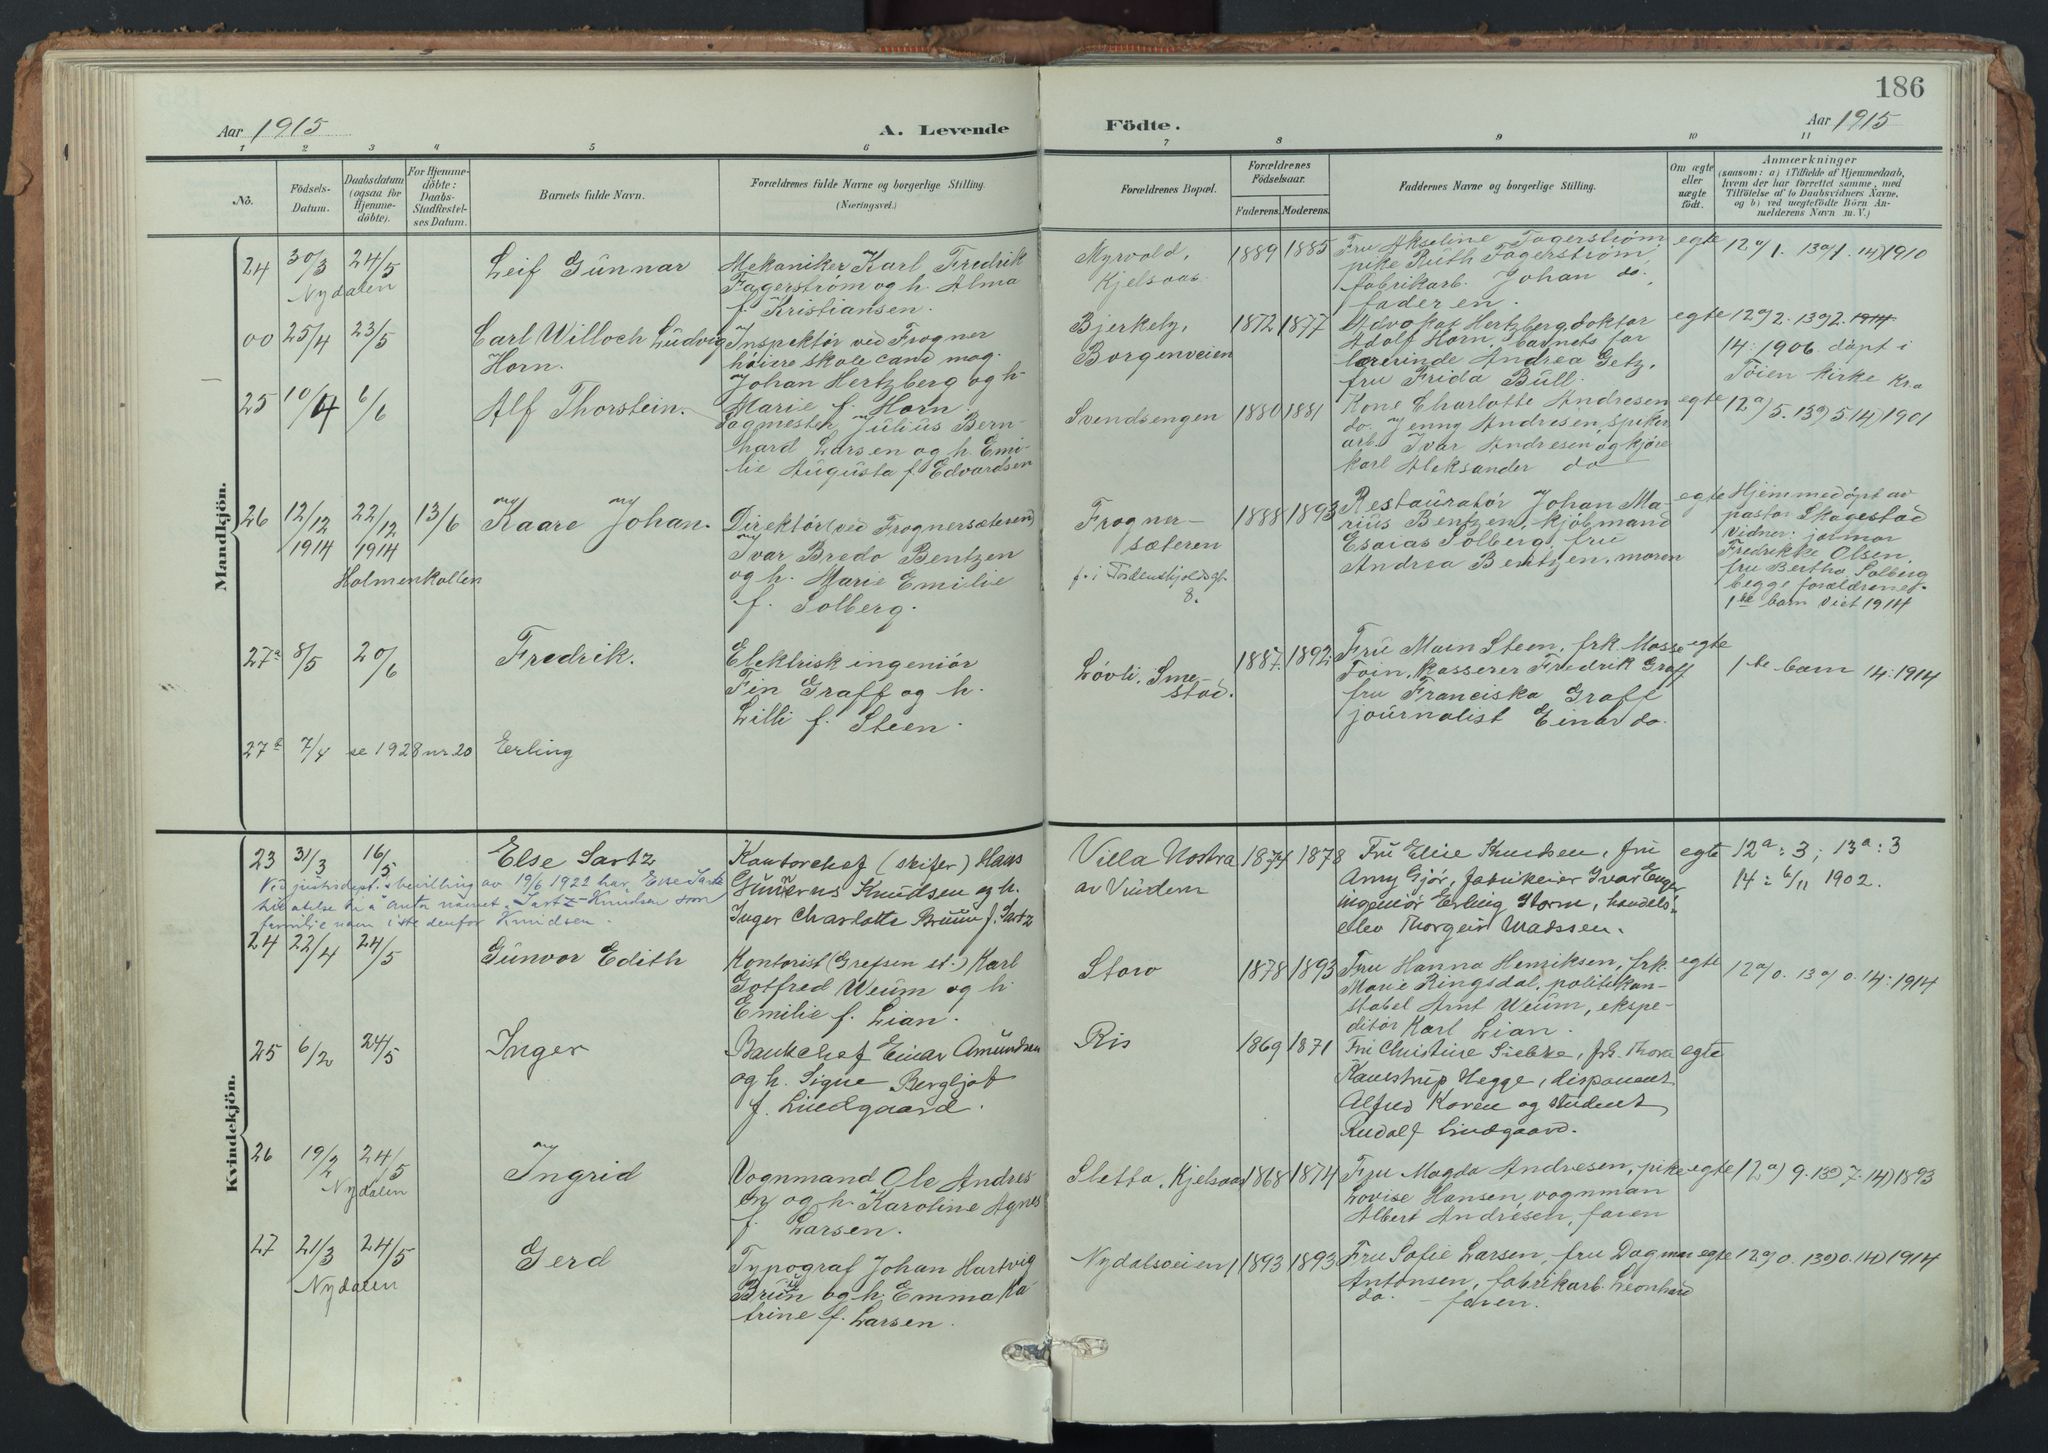 186
Aar 1915
A. Levende
Födte.
Aar 1915
1 2 3 4 5 6 7 8 9 10 11
No.
Födsels-
Datum.
Daabsdatum
(ogsaa for
Hjemme-
döbte).
For Hjemme-
döbte:
Daabs-
Stadfæstel-
ses Datum.
Barnets fulde Navn.
Forældrenes fulde Navne og borgerlige Stilling.
(Næringsvei.)
Forældrenes Bopæl.
Forældrenes
Födselsaar.
Faderens. Moderens.
Faddernes Navne og borgerlige Stilling.
Om ægte
eller
uægte
födt.
Anmærkninger
(saasom: a) i Tilfælde af Hjemmedaab,
hvem der har forrettet samme, med
Tilföielse af to Daabsvidners Navne,
og b) ved uægtefödte Börn An-
melderens Navn m. V.)
Mandkjön.
24 30/3 24/5
Nydalen
Leif Gunnar
Mekaniker Karl Fredrik
Fagerstrøm og h. Alma
f. Kristiansen.
Myrvold,
Kjelsaas
1889 1885
Fru Akseline Fagerstrøm
pike Ruth Fagerstrøm,
fabrikarb. Johan do,
faderen.
egte
12a)1. 13a)1. 14)1910
00 25/4 23/5
Carl Willoch Ludvig
Horn.
Inspektør ved Frogner
høiere skole cand mag.
Johan Hertzberg og h.
Marie f. Horn.
Bjerkely,
Borgenveien
1872 1877
Advokat Hertzberg, doktor
Adolf Horn, barnets far
lærerinde Andrea Getz,
fru Frida Bull.
egte
12a)2. 13a)2. 1914
14: 1906. døpt i
Tøien kirke Kra
25 10/4 6/6
Alf Thorstein.
Sagmester Julius Bern-
hard Larsen og h. Emi-
lie Augusta f. Edvardsen
Svendsengen
1880 1881
Kone Charlotte Andresen
do. Jenny Andresen, spiker
arb. Ivar Andresen og kjøre
karl Aleksander do
egte
12a)5. 13a)5. 14)1901
26 12/12 1914 22/12 1914 13/6
Holmenkollen
Kaare Johan.
Direktør (ved Frognersæteren)
Ivar Bredo Bentzen
og h. Marie Emilie
f. Solberg.
Frogner-
sæteren
f. i Tordenskjoldsgt.
8.
1888 1893
Restauratør Johan Ma-
rius Bentzen, kjøbmand
Esaias Solberg, fru
Andrea Bentzen, moren
egte
Hjemmedøpt av
pastor Skagestad
Vidner: jolmor
Fredrikke Olsen,
fru Bertha Solberg
begge forældrenes
1ste barn Viet 1914
27a 8/5 20/6
Fredrik.
Elektrisk ingeniør
Fin Graff og h.
Lilli f. Steen.
Løvli, Sme-
stad.
1887 1892
Fru Main Steen, frk. Mosse
Toin, kasserer Fredrik Graff
fru Franciska Graff
journalist Einar do.
egte
1ste barn 14: 1914
27a 7/4 se 1928 nr. 20 Erling
Kvindekjön.
23 31/3 16/5
Else Sartz
Ved justisdept.s bevilling av 19/6 1922 har Else Sartz
tilladelse til å anta navnet Sartz-Knudsen som
familienavn istedenfor Knudsen.
Kontorchef (skifer) Hans
Gunerus Knudsen og h.
Inger Charlotte Bruun f. Sartz
Villa Nostra
av Vindern
1874 1878
Fru Elise Knudsen, fru
Amy Gjør, fabrikeier Ivar Enger
ingeniør Erling Storm, handels-
elev Thorgeir Madssen.
egte
12a: 3; 13a: 3
14: 6/11 1902.
24 22/4 24/5
Gunvor Edith
Kontorist (Grefsen st.) Karl
Gotfred Weum og h.
Emilie f. Lian.
Storo
1878 1893
Fru Hanna Henriksen, frk.
Marie Ringsdal, politikon-
stabel Arnt Weum, ekspe-
ditør Karl Lian.
egte
12a)0. 13a)0. 14: 1914
25 6/2 24/5
Inger
Bankchef Einar Amundsen
og h. Signe Bergljot
f. Lindgaard.
Ris
1869 1871
Fru Christine Siebke, frk. Thora
Kanestrup Hegge, disponent
Alfred Koren og student
Rudolf Lindgaard.
egte
26 19/2 24/5
Nydalen
Ingrid
Vognmand Ole Andres
en og h. Karoline Agnes
f. Larsen.
Sletta, Kjelsaas
1868 1874
Fru Magda Andresen, pike
Lovise Hansen, vognman
Albert Andresen, faren
egte
12a) 9. 13a) 7. 14) 1893
27 21/3 24/5
Nydalen
Gerd
Typograf Johan Hartvig
Bruun og h. Emma Ka
trine f. Larsen.
Nydalsveien 1
1893 1893
Fru Sofie Larsen, fru Dagmar
Antonsen, fabrikarb. Leonhard
do. – faren.
egte
12a)0. 13a)0. 14) 1914